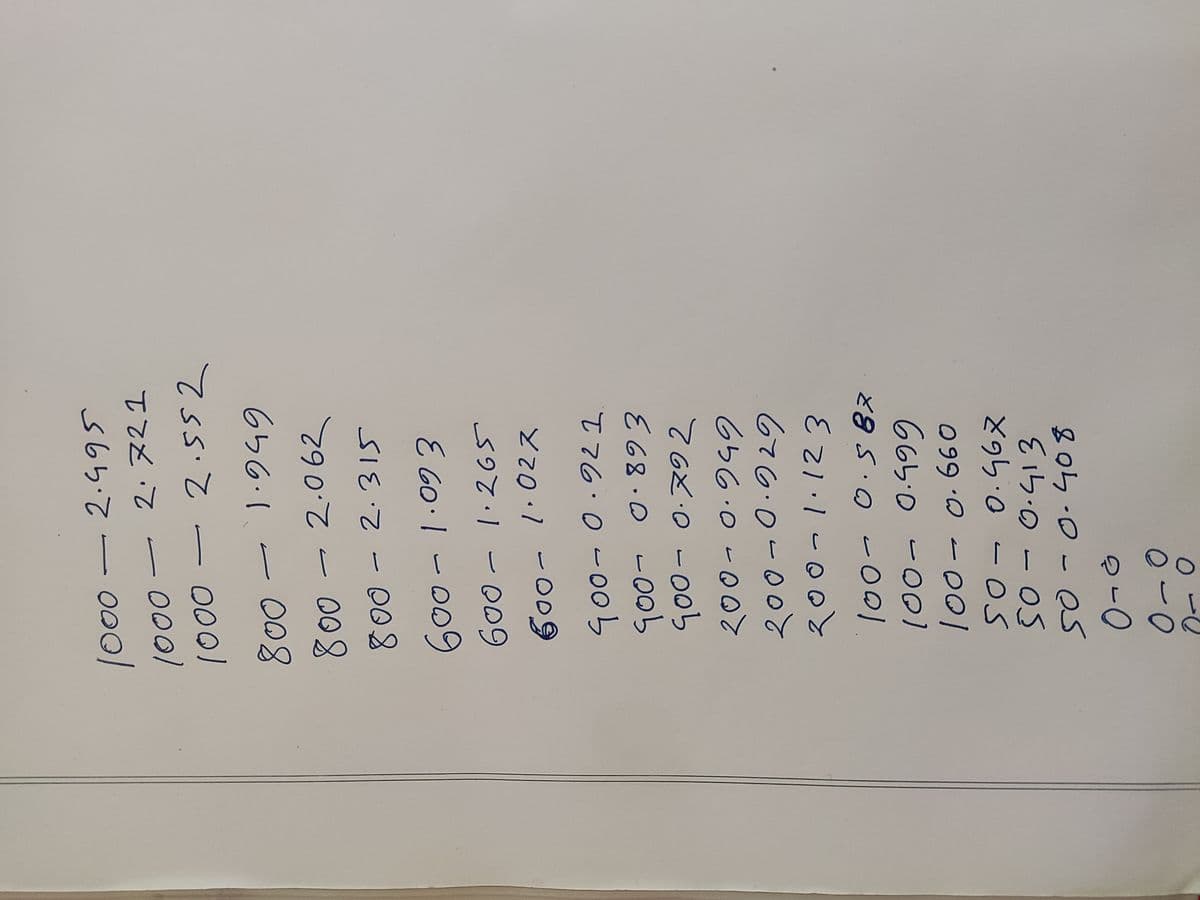 1000 — 2.495
1000 — 2.721
1000 — 2.552
800 — 1.949
800 — 2.062
800 - 2.315
600 - 1.093
600 - 1.265
600 - 1.027
400 - 0.921
400 - 0.893
400 - 0.792
200 - 0.949
200 - 0.929
200 - 1.123
100 - 0.587
100 - 0.499
100 - 0.660
50 - 0.467
50 - 0.413
50 - 0.408
0-0
0-0
0-0